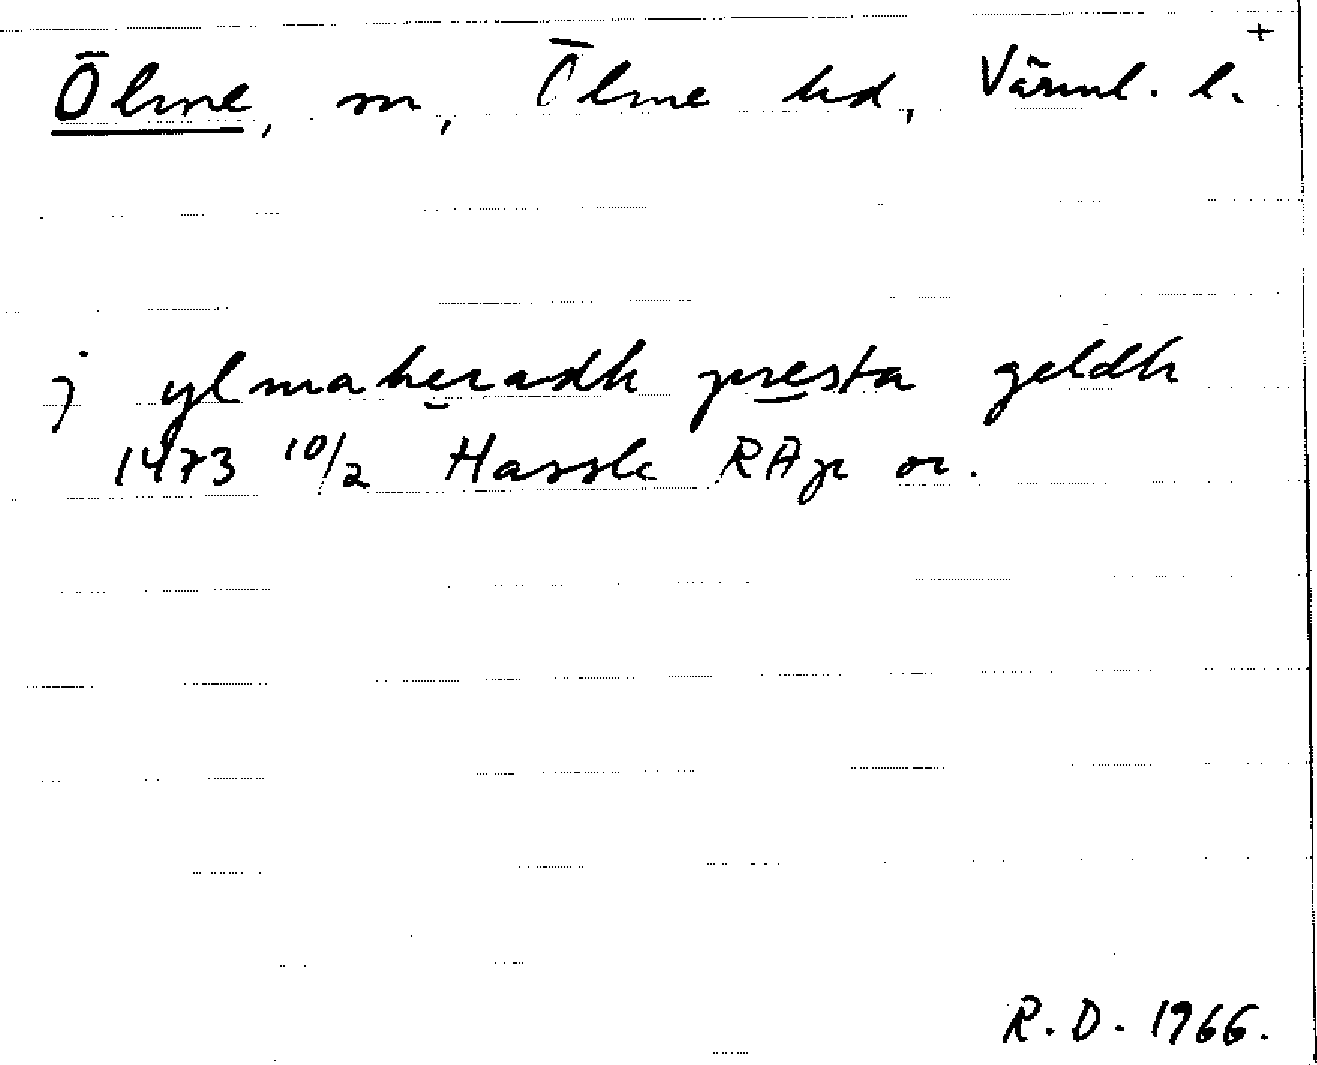 +
Ölme, sn, Ölme hd, Värml. l.
j ylmaheradh presta geldh
1473 10/2 Hassle RAp or.
R. D. 1966.